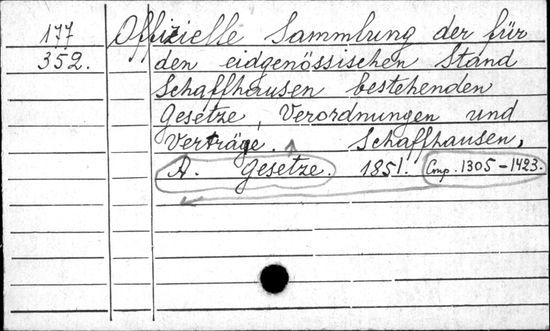 177 Offizielle Sammlung der für
352. den eidgenössischen Stand
Schaffhausen bestehenden
Gesetze, Verordnungen und
Verträge. Schaffhausen,
A. Gesetze. 1851. Cmp. 1305-1423.